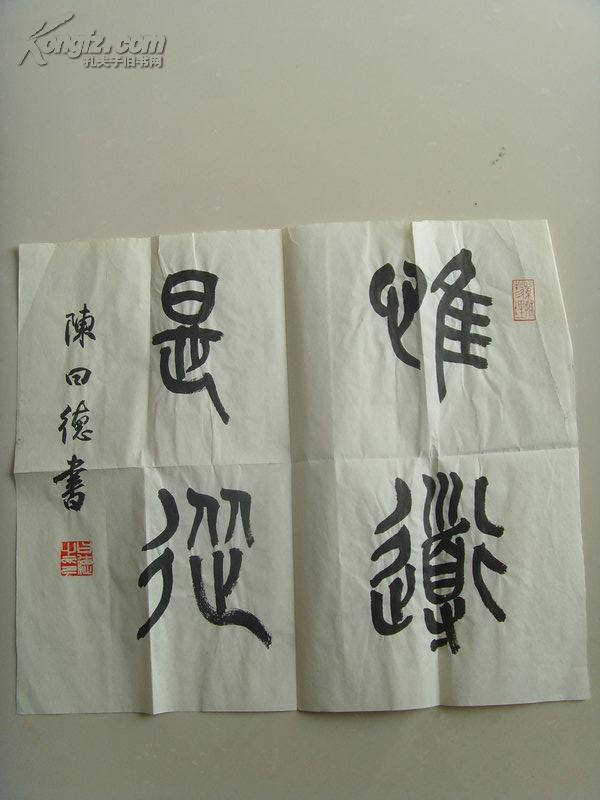 Kongfz.com
孔夫子旧书网
惟道
是從
陳曰德書